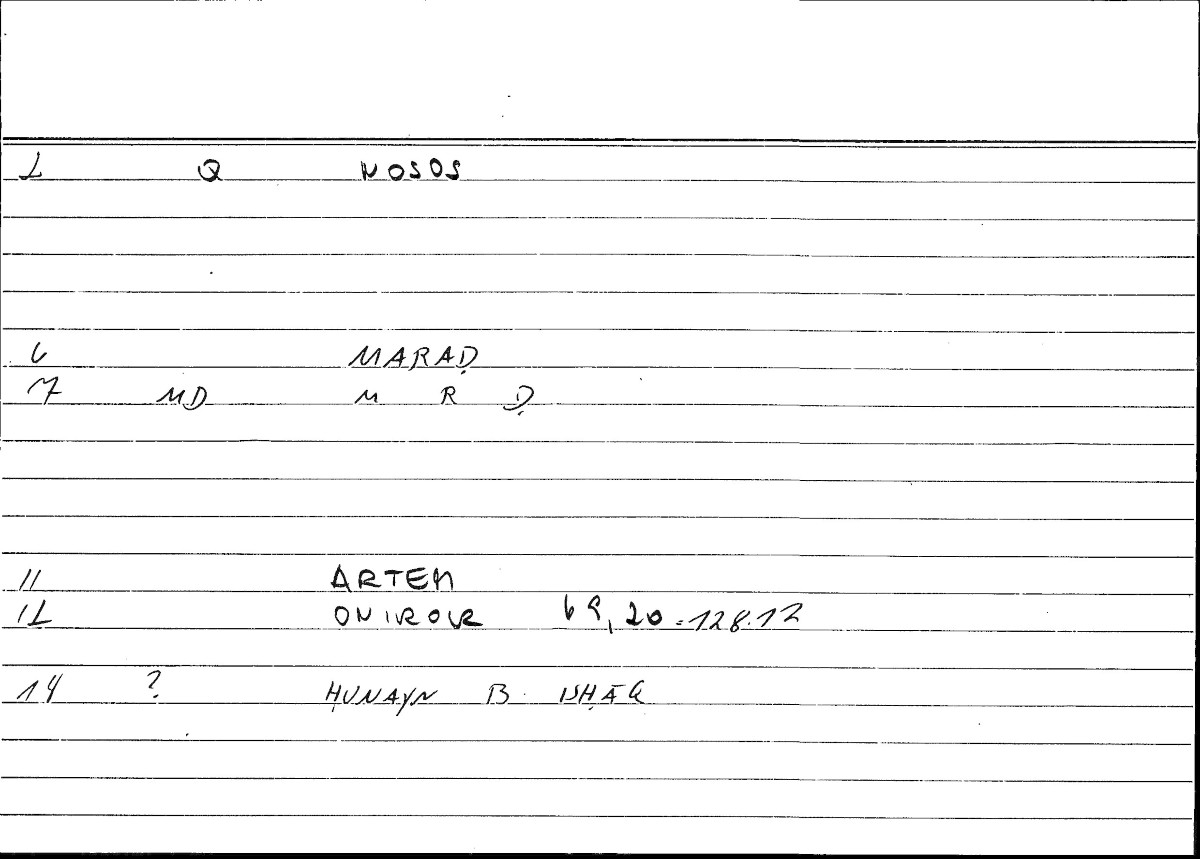 1 Q NOSOS
6 MARAḌ
7 MD M R Ḍ
11 ARTEM
12 ONIROCR 69,20 = 128.12
14 ? ḤUNAYN B. ISḤĀQ